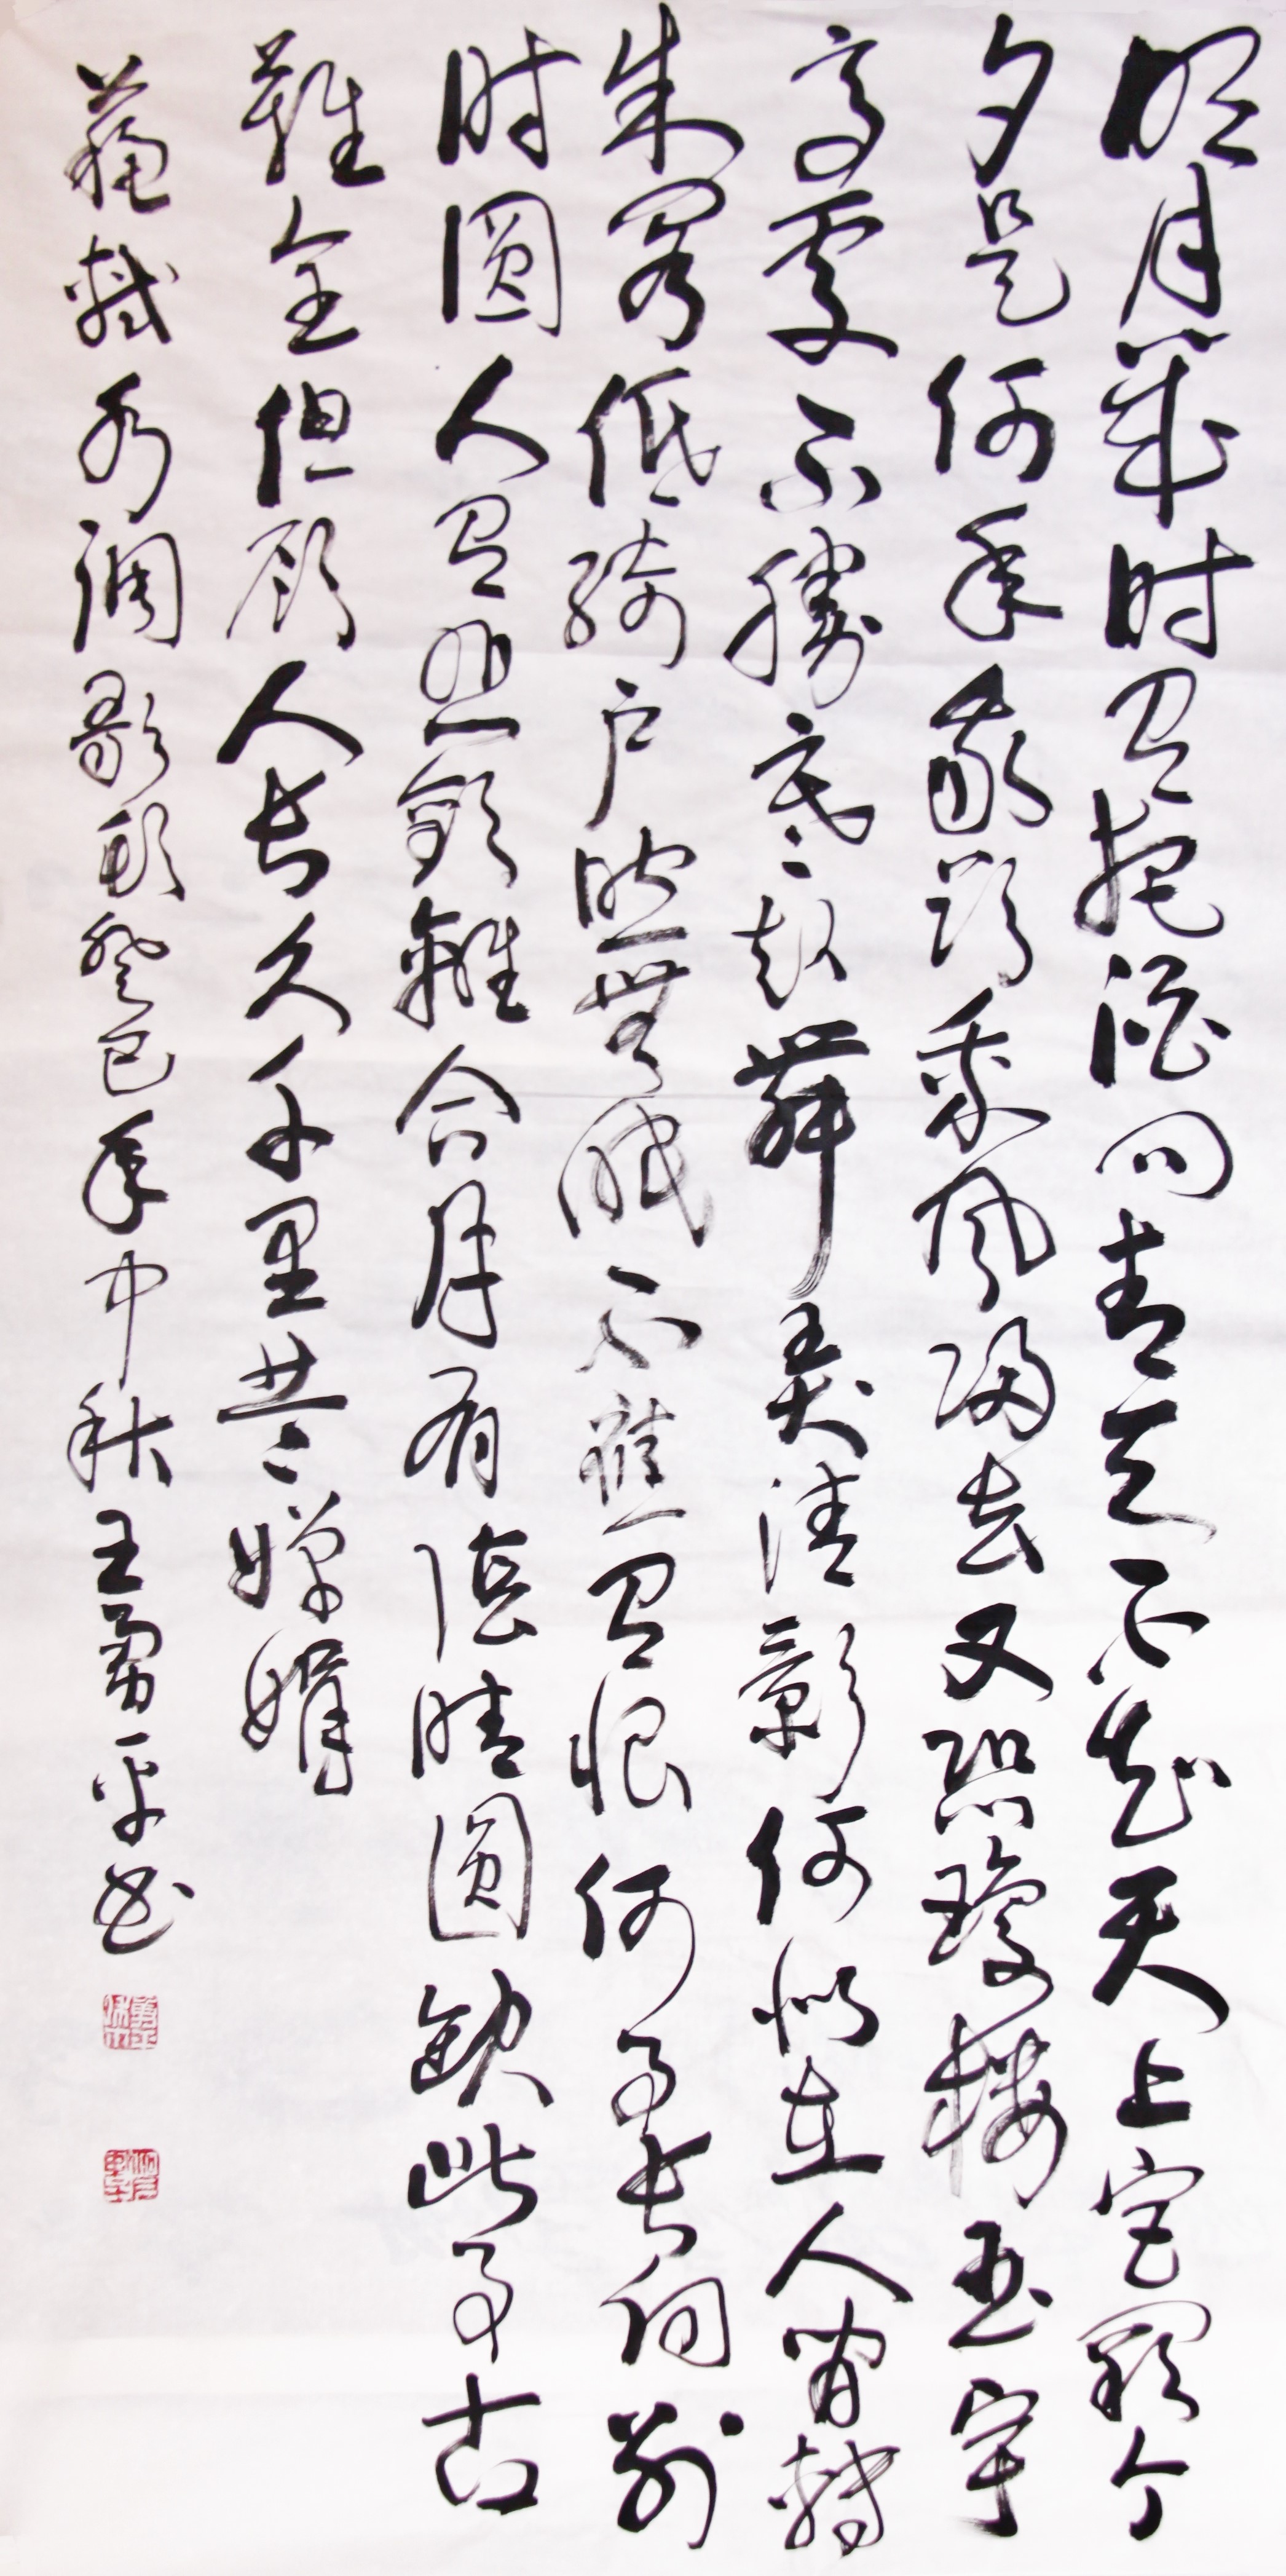 明月幾时有把酒问青天不知天上宫阙今
夕是何年我欲乘风归去又恐瓊楼玉宇
高處不勝寒起舞弄清影何似在人间转
朱阁低綺户照無眠不應有恨何事长向别
时圆人有悲歡離合月有陰晴圆缺此事古
難全但願人长久千里共嬋娟
蘇軾水调歌頭癸巳年中秋王勇平书